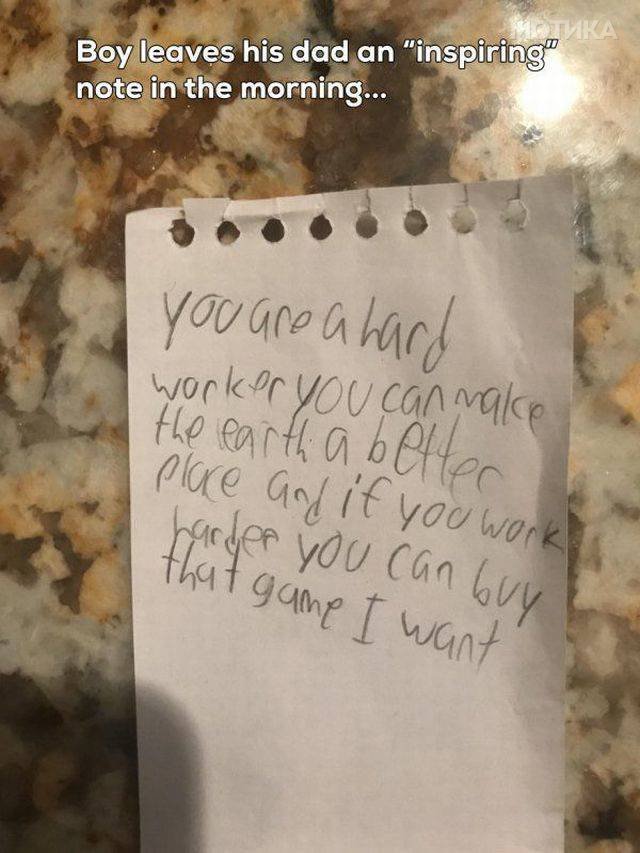 МОТИКА
Boy leaves his dad an "inspiring"
note in the morning...
you are a hard
worker you can make
the earth a better
place and if you work
harder you can buy
that game I want